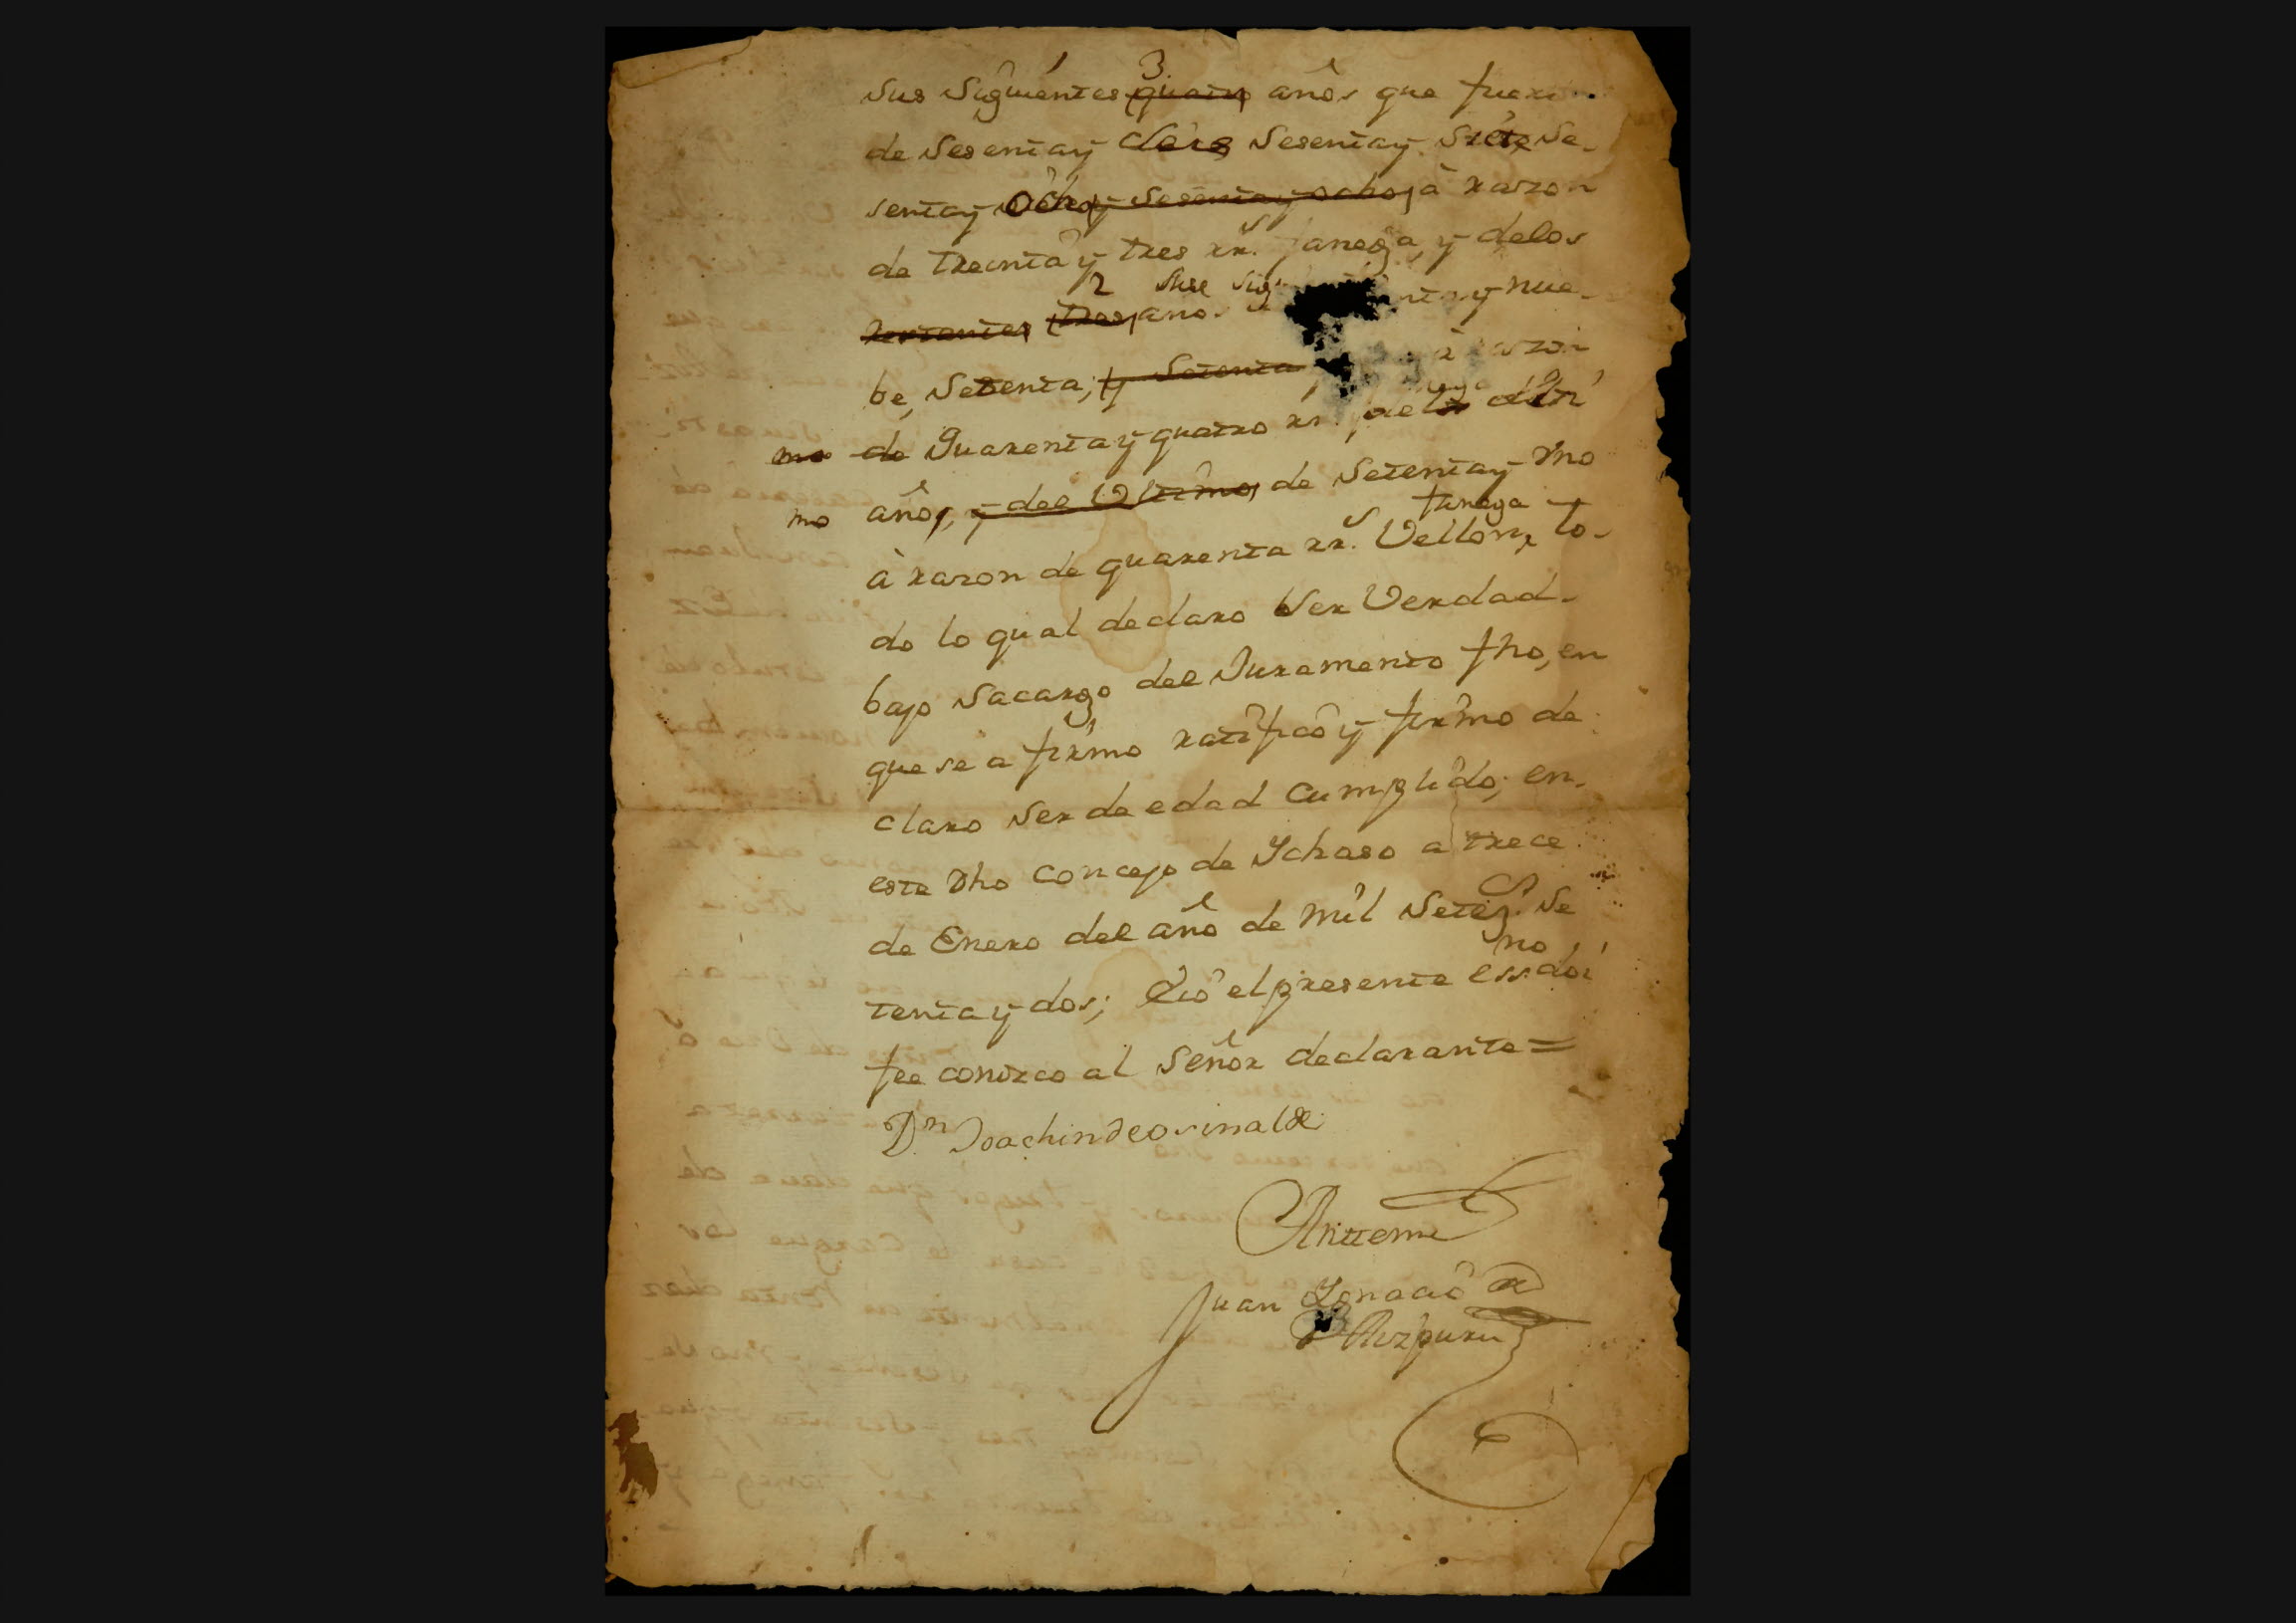 3
sus Siguientes quatro años que fueron
de Sesenta y Seis Sesenta y Siete Se-
senta y Ocho, y Sesenta y ocho, à razon
de treinta y tres rrs. fanega, y delos
2 sus sig
restantes tres años nta y nue-
be, Setenta, y Setenta à razon
de Quarenta y quatro rrs. del ulti
mo
mo año, y del Ultimo, de Setenta y Vno
fanega
à razon de quarenta rrs. Vellon, to-
do lo qual declaro ser Verdad
bajo sacargo del Juramento fho, en
que se afirmo ratifico y firmo de
claro ser de edad Cumplido; en
este Dho concejo de Ychaso a trece
de Enero del año de mil Setezs. Se
tenta y dos; Éio el presente essno doi
fee conozco al Señor declarante =
Dn. Joachin de osinalde
Antemi
Juan Ignacio de
Aizpuru